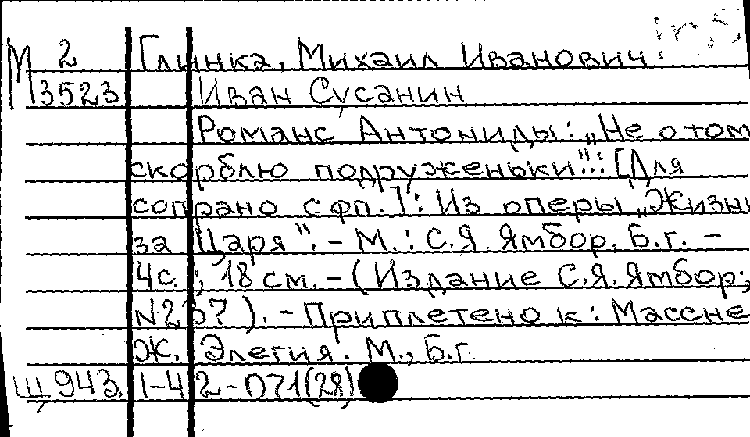 М 2 Глинка, Михаил Иванович.
3523 Иван Сусанин
Романс Антониды: „Не о том
скорблю подруженьки": [Для
сопрано с фп.]: Из оперы „Жизнь
за Царя". - М.: С.Я. Ямбор, Б.г. -
4с.; 18 см. - (Издание С.Я. Ямбор;
N267). - Приплетено к: Массне
Ж. Элегия. М., Б.г.
Щ 943. 1-42-071(28)